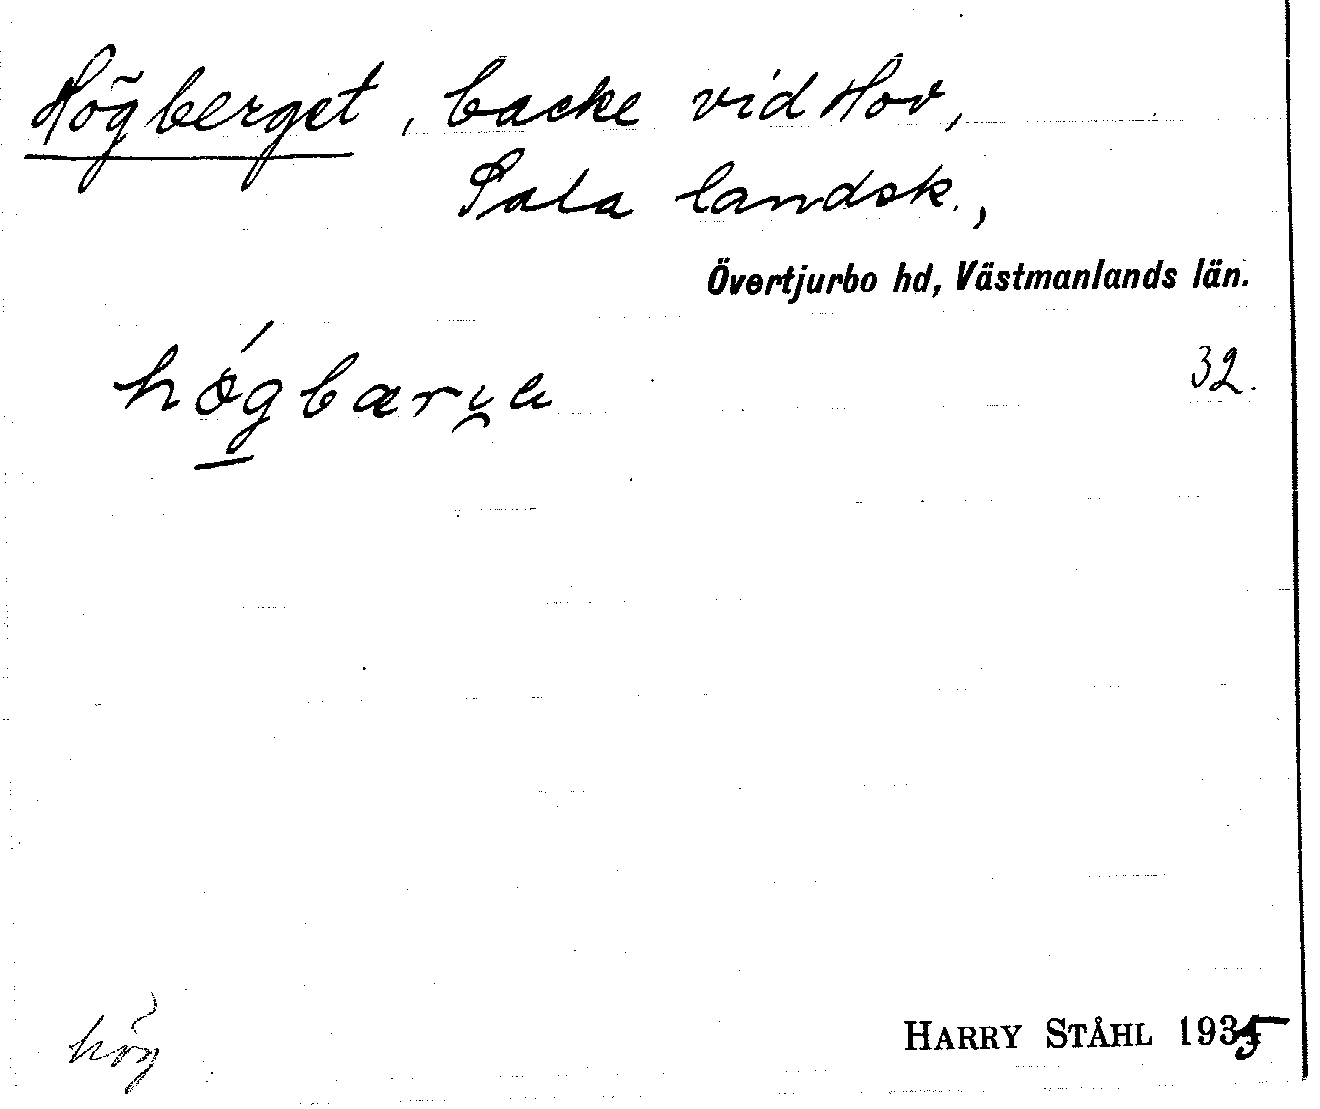 Högberget, backe vid Hov,
Sala landsk.,
Övertjurbo hd, Västmanlands län.
32.
hög
HARRY STÅHL 1935